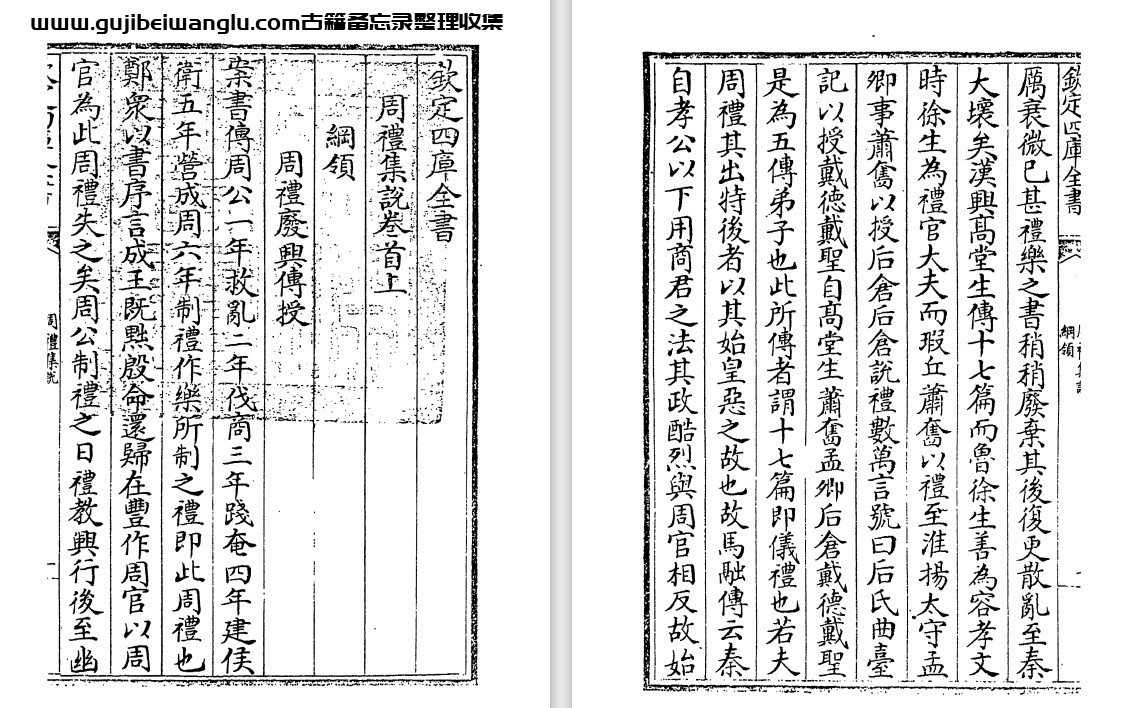 www.gujibeiwanglu.com古籍备忘录整理收集
欽定四庫全書
周禮集說卷首上
綱領
周禮廢興傳授
案書傳周公一年救亂二年伐商三年踐奄四年建侯
衛五年營成周六年制禮作樂所制之禮即此周禮也
鄭衆以書序言成王既黜殷命還歸在豐作周官以周
官為此周禮失之矣周公制禮之日禮教興行後至幽
周禮集說
欽定四庫全書
綱領
厲衰微已甚禮樂之書稍稍廢棄其後復更散亂至秦
大壞矣漢興髙堂生傳十七篇而魯徐生善為容孝文
時徐生為禮官大夫而瑕丘蕭奮以禮至淮揚太守孟
卿事蕭奮以授后倉后倉說禮數萬言號曰后氏曲臺
記以授戴德戴聖自髙堂生蕭奮孟卿后倉戴德戴聖
是為五傳弟子也此所傳者謂十七篇即儀禮也若夫
周禮其出特後者以其始皇惡之故也故馬融傳云秦
自孝公以下用商君之法其政酷烈與周官相反故始